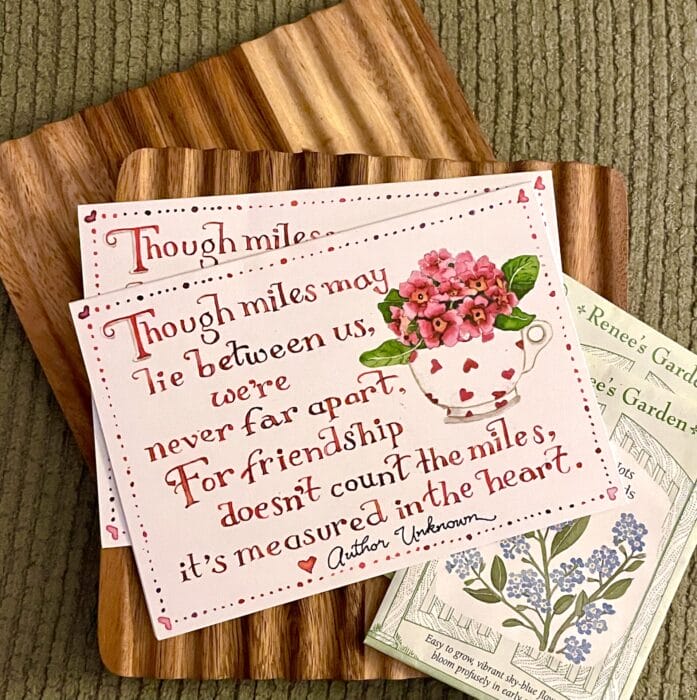 Though miles
Th
Though miles may
lie between us,
we're
never far apart,
For friendship
doesn't count the miles,
it's measured in the heart.
Author Unknown
Renee's Gard
ee's Garden
Easy to grow, vibrant sky-blue
bloom profusely in early